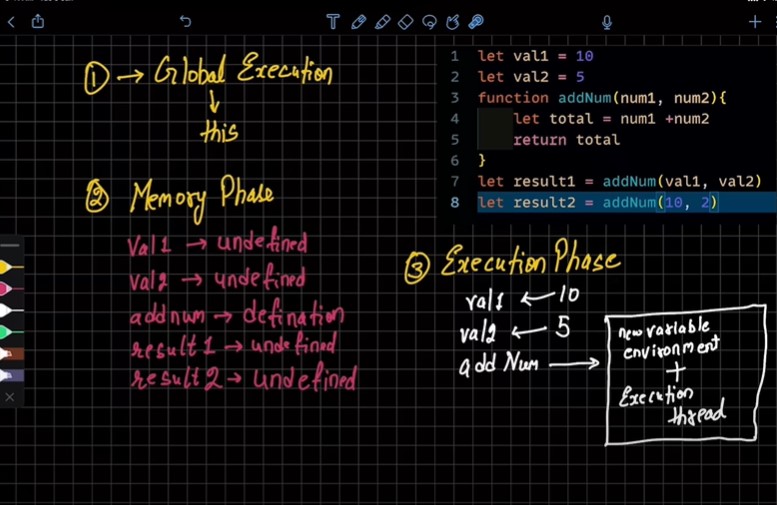 ① → Global Execution
↓
this
② Memory Phase
Val1 → undefined
val2 → undefined
addnum → defination
result1 → undefined
result2 → undefined
1 let val1 = 10
2 let val2 = 5
3 function addNum(num1, num2){
4 let total = num1 +num2
5 return total
6 }
7 let result1 = addNum(val1, val2)
8 let result2 = addNum(10, 2)
③ Execution Phase
val1 ← 10
val2 ← 5
add Num →
new variable
environment
+
Execution
thread